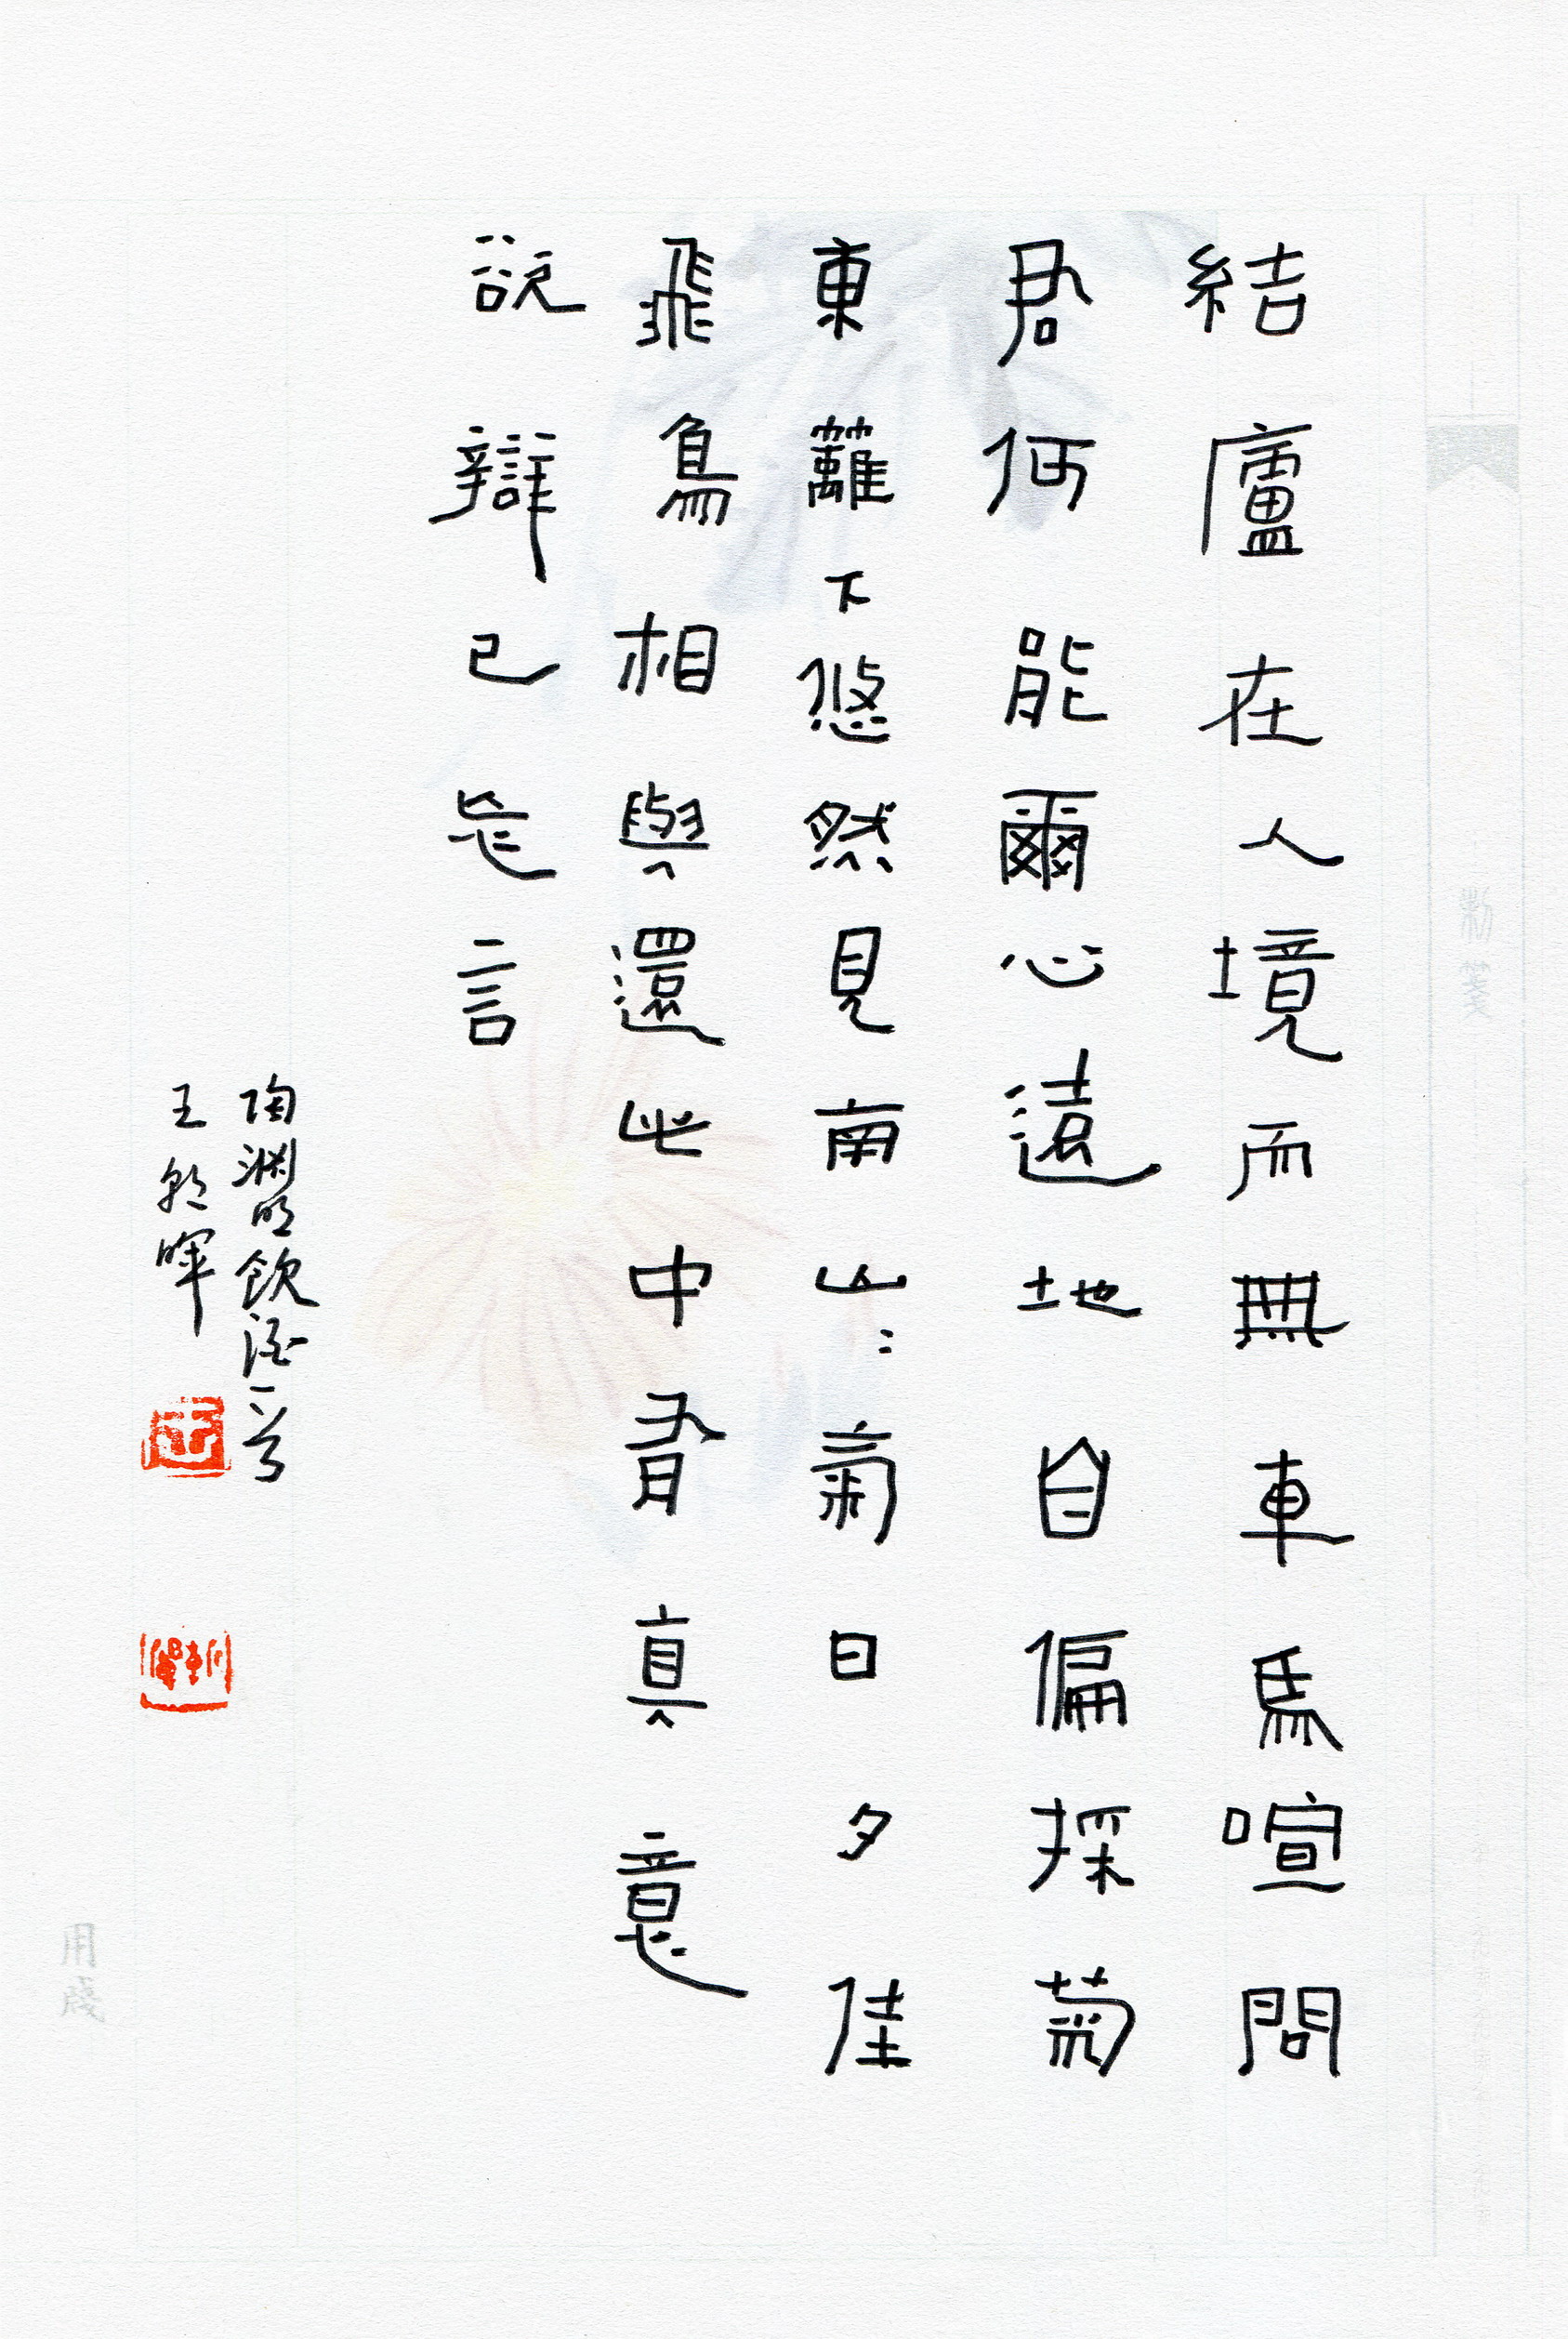 結廬在人境而無車馬喧問
君何能爾心遠地自偏採菊
東籬下悠然見南山〻氣日夕佳
飛鳥相與還此中有真意
欲辯已忘言
陶淵明飲酒一首
王朝暉